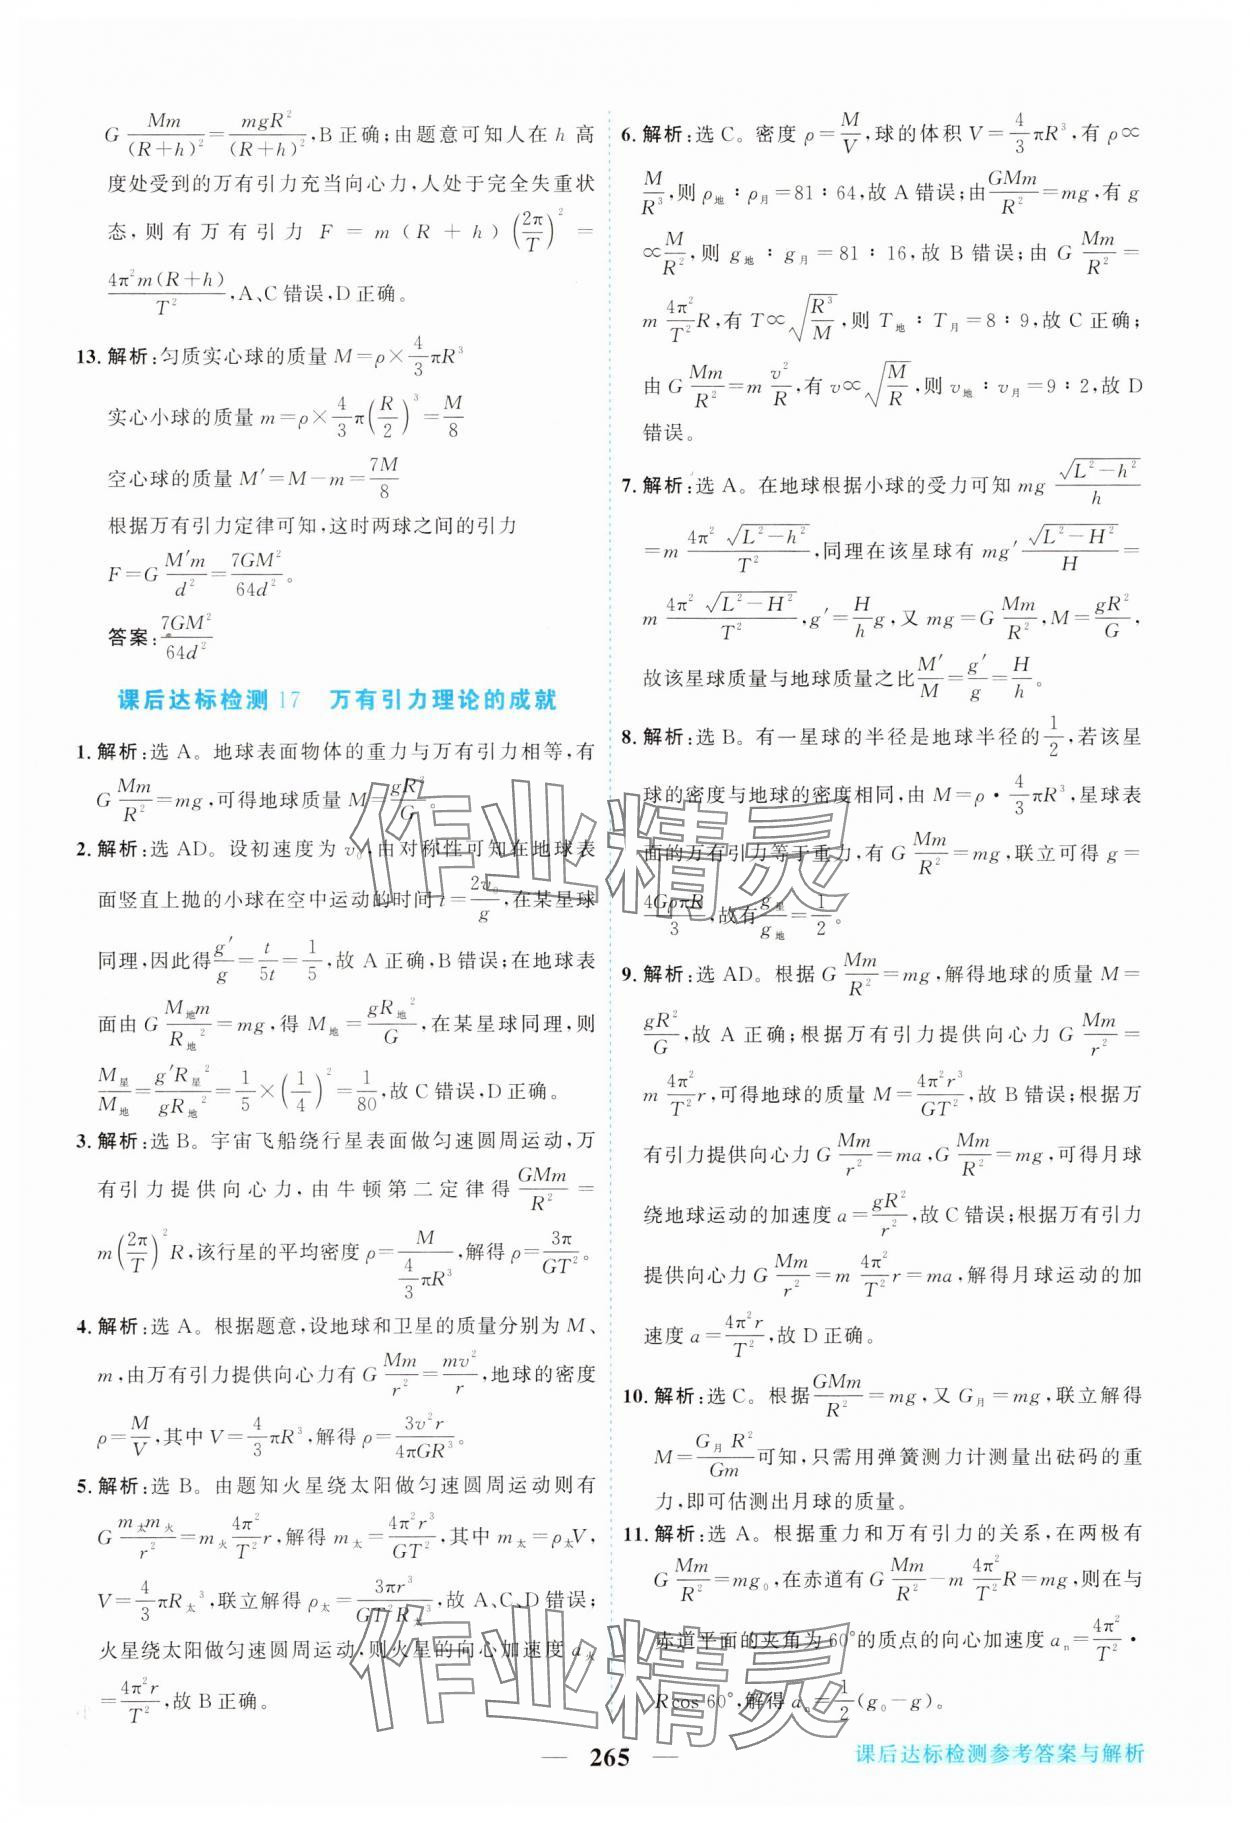 G Mm/(R+h)²=mgR²/(R+h)²,B正确;由题意可知人在 h 高
度处受到的万有引力充当向心力,人处于完全失重状
态,则有万有引力 F=m(R+h)(2π/T)²=
4π²m(R+h)/T²,A、C错误,D正确。
13. 解析:匀质实心球的质量 M=ρ×4/3πR³
实心小球的质量 m=ρ×4/3π(R/2)³=M/8
空心球的质量 M′=M-m=7M/8
根据万有引力定律可知,这时两球之间的引力
F=G M′m/d²=7GM²/64d²。
答案:7GM²/64d²
课后达标检测17 万有引力理论的成就
1. 解析:选 A。地球表面物体的重力与万有引力相等,有
G Mm/R²=mg,可得地球质量 M=gR²/G。
2. 解析:选 AD。设初速度为 v₀,由对称性可知在地球表
面竖直上抛的小球在空中运动的时间 t=2v₀/g,在某星球
同理,因此得g′/g=t/5t=1/5,故 A 正确,B 错误;在地球表
面由 G M地m/R地²=mg,得 M地=gR地²/G,在某星球同理,则
M星/M地=g′R星²/gR地²=1/5×(1/4)²=1/80,故 C 错误,D 正确。
3. 解析:选 B。宇宙飞船绕行星表面做匀速圆周运动,万
有引力提供向心力,由牛顿第二定律得GMm/R²=
m(2π/T)²R,该行星的平均密度 ρ=M/(4/3πR³),解得 ρ=3π/GT²。
4. 解析:选 A。根据题意,设地球和卫星的质量分别为 M、
m,由万有引力提供向心力有 G Mm/r²=mv²/r,地球的密度
ρ=M/V,其中 V=4/3πR³,解得 ρ=3v²r/4πGR³。
5. 解析:选 B。由题知火星绕太阳做匀速圆周运动则有
G m太m火/r²=m火 4π²/T² r,解得 m太=4π²r³/GT²,其中 m太=ρ太V,
V=4/3πR太³,联立解得 ρ太=3πr³/GT²R太³,故 A、C、D 错误;
火星绕太阳做匀速圆周运动,则火星的向心加速度 a火
=4π²r/T²,故 B 正确。
6. 解析:选 C。密度 ρ=M/V,球的体积 V=4/3πR³,有 ρ∝
M/R³,则 ρ地∶ρ月=81∶64,故 A 错误;由GMm/R²=mg,有 g
∝M/R²,则 g地∶g月=81∶16,故 B 错误;由 G Mm/R²=
m 4π²/T² R,有 T∝√(R³/M),则 T地∶T月=8∶9,故 C 正确;
由 G Mm/R²=m v²/R,有 v∝√(M/R),则 v地∶v月=9∶2,故 D
错误。
7. 解析:选 A。在地球根据小球的受力可知 mg √(L²-h²)/h
=m 4π²√(L²-h²)/T²,同理在该星球有 mg′√(L²-H²)/H=
m 4π²√(L²-H²)/T²,g′=H/h g,又 mg=G Mm/R²,M=gR²/G,
故该星球质量与地球质量之比M′/M=g′/g=H/h。
8. 解析:选 B。有一星球的半径是地球半径的1/2,若该星
球的密度与地球的密度相同,由 M=ρ·4/3πR³,星球表
面的万有引力等于重力,有 G Mm/R²=mg,联立可得 g=
4GρπR/3,故有g星/g地=1/2。
9. 解析:选 AD。根据 G Mm/R²=mg,解得地球的质量 M=
gR²/G,故 A 正确;根据万有引力提供向心力 G Mm/r²=
m 4π²/T² r,可得地球的质量 M=4π²r³/GT²,故 B 错误;根据万
有引力提供向心力 G Mm/r²=ma,G Mm/R²=mg,可得月球
绕地球运动的加速度 a=gR²/r²,故 C 错误;根据万有引力
提供向心力 G Mm/r²=m 4π²/T² r=ma,解得月球运动的加
速度 a=4π²r/T²,故 D 正确。
10. 解析:选 C。根据GMm/R²=mg,又 G月=mg,联立解得
M=G月R²/Gm可知,只需用弹簧测力计测量出砝码的重
力,即可估测出月球的质量。
11. 解析:选 A。根据重力和万有引力的关系,在两极有
G Mm/R²=mg₀,在赤道有 G Mm/R²-m 4π²/T² R=mg,则在与
赤道平面的夹角为60°的质点的向心加速度 aₙ=4π²/T²·
Rcos 60°,解得 aₙ=1/2(g₀-g)。
作业精灵
作业精灵
265
课后达标检测参考答案与解析